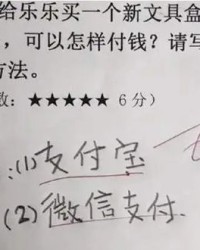 给乐乐买一个新文具盒
,可以怎样付钱?请写
方法。
数:★★★★★ 6分)
:(1)支付宝
(2)微信支付.